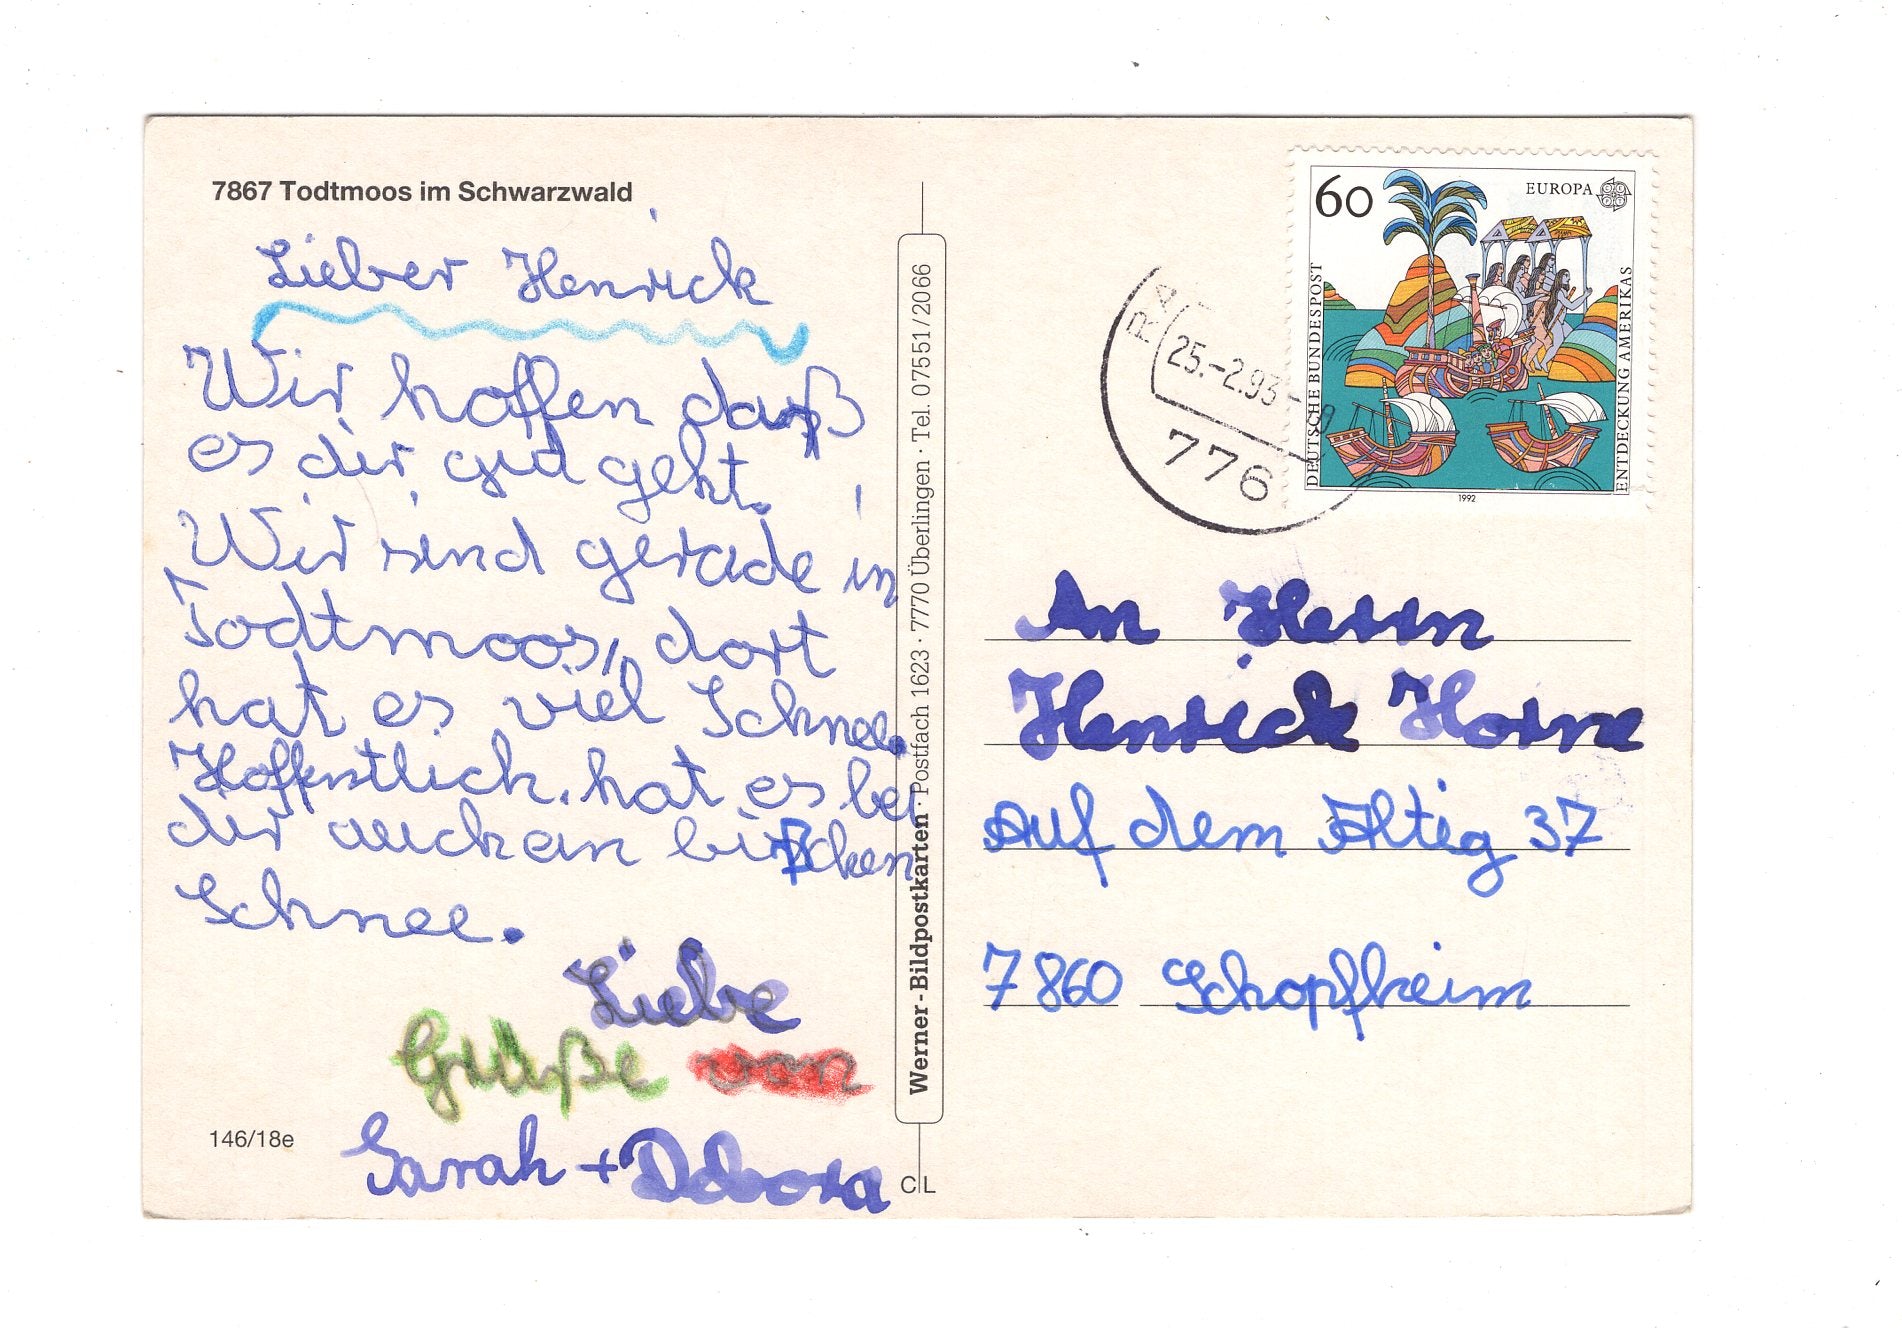 7867 Todtmoos im Schwarzwald
Lieber Henrick
Wir hoffen daß
es dir gud geht.
Wir sind gerade in
Todtmoos, dort
hat es viel Schnee.
Hoffentlich hat es bei
dir auch ein bißchen
Schnee.
Liebe
Grüße von
Sarah + Debora
146/18e
Werner-Bildpostkarten · Postfach 1623 · 7770 Überlingen · Tel. 07551/2066
CL
25.-2.93
776
60
EUROPA
DEUTSCHE BUNDESPOST
ENTDECKUNG AMERIKAS
1992
An Herrn
Henrick Horne
Auf dem Altig 37
7860 Schopfheim